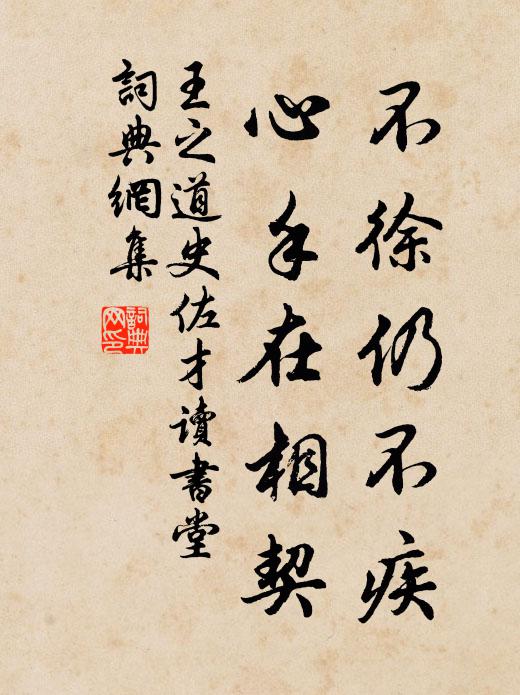 不徐仍不疾
心手在相契
王之道史佐才讀書堂
詞典網集
詞典
网印